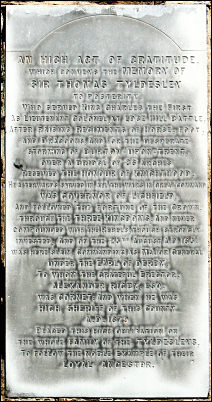 AN HIGH ACT OF GRATITUDE,
WHICH CONVEYS THE MEMORY OF
SIR THOMAS TYLDESLEY
TO POSTERITY,
WHO SERVED KING CHARLES THE FIRST
AS LIEUTENANT COLONEL AT EDGE HILL BATTLE,
AFTER RAISING REGIMENTS OF HORSE, FOOT,
AND DRAGOONS, AND FOR THE DESPERATE
STORMING OF BURTON UPON TRENT
OVER A BRIDGE OF 36 ARCHES
RECEIVED THE HONOUR OF KNIGHTHOOD.
HE AFTERWARDS SERVED IN ALL THE WARS IN GREAT COMMAND,
WAS GOVERNOR OF LICHFIELD,
AND FOLLOWED THE FORTUNE OF THE CROWN
THROUGH THE THREE KINGDOMS, AND NEVER
COMPOUNDED WITH THE REBELS THOUGH STRONGLY
INVESTED, AND ON THE 25TH AUGUST A.D. 1651,
WAS HERE SLAIN, COMMANDING AS MAJOR GENERAL
UNDER THE EARL OF DERBY,
TO WHOM THE GRATEFUL ERECTOR,
ALEXANDER RIGBY ESQ.
WAS CORNET, AND WHEN HE WAS
HIGH SHERIFF OF THE COUNTY
A.D. 1679
PLACED THIS HIGH OBLIGATION ON
THE WHOLE FAMILY OF THE TYLDESLEYS,
TO FOLLOW THE NOBLE EXAMPLE OF THEIR
LOYAL ANCESTOR.